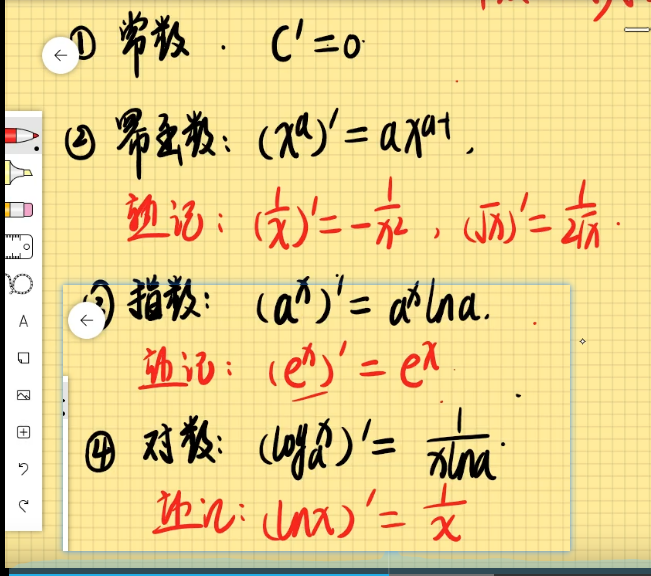 ① 常数. C' = 0.
② 幂函数: (xᵃ)' = axᵃ⁻¹.
熟记: (1/x)' = -1/x², (√x)' = 1/(2√x).
指数: (aˣ)' = aˣ ln a.
熟记: (eˣ)' = eˣ
④ 对数: (logₐx)' = 1/(x ln a).
熟记: (ln x)' = 1/x
A